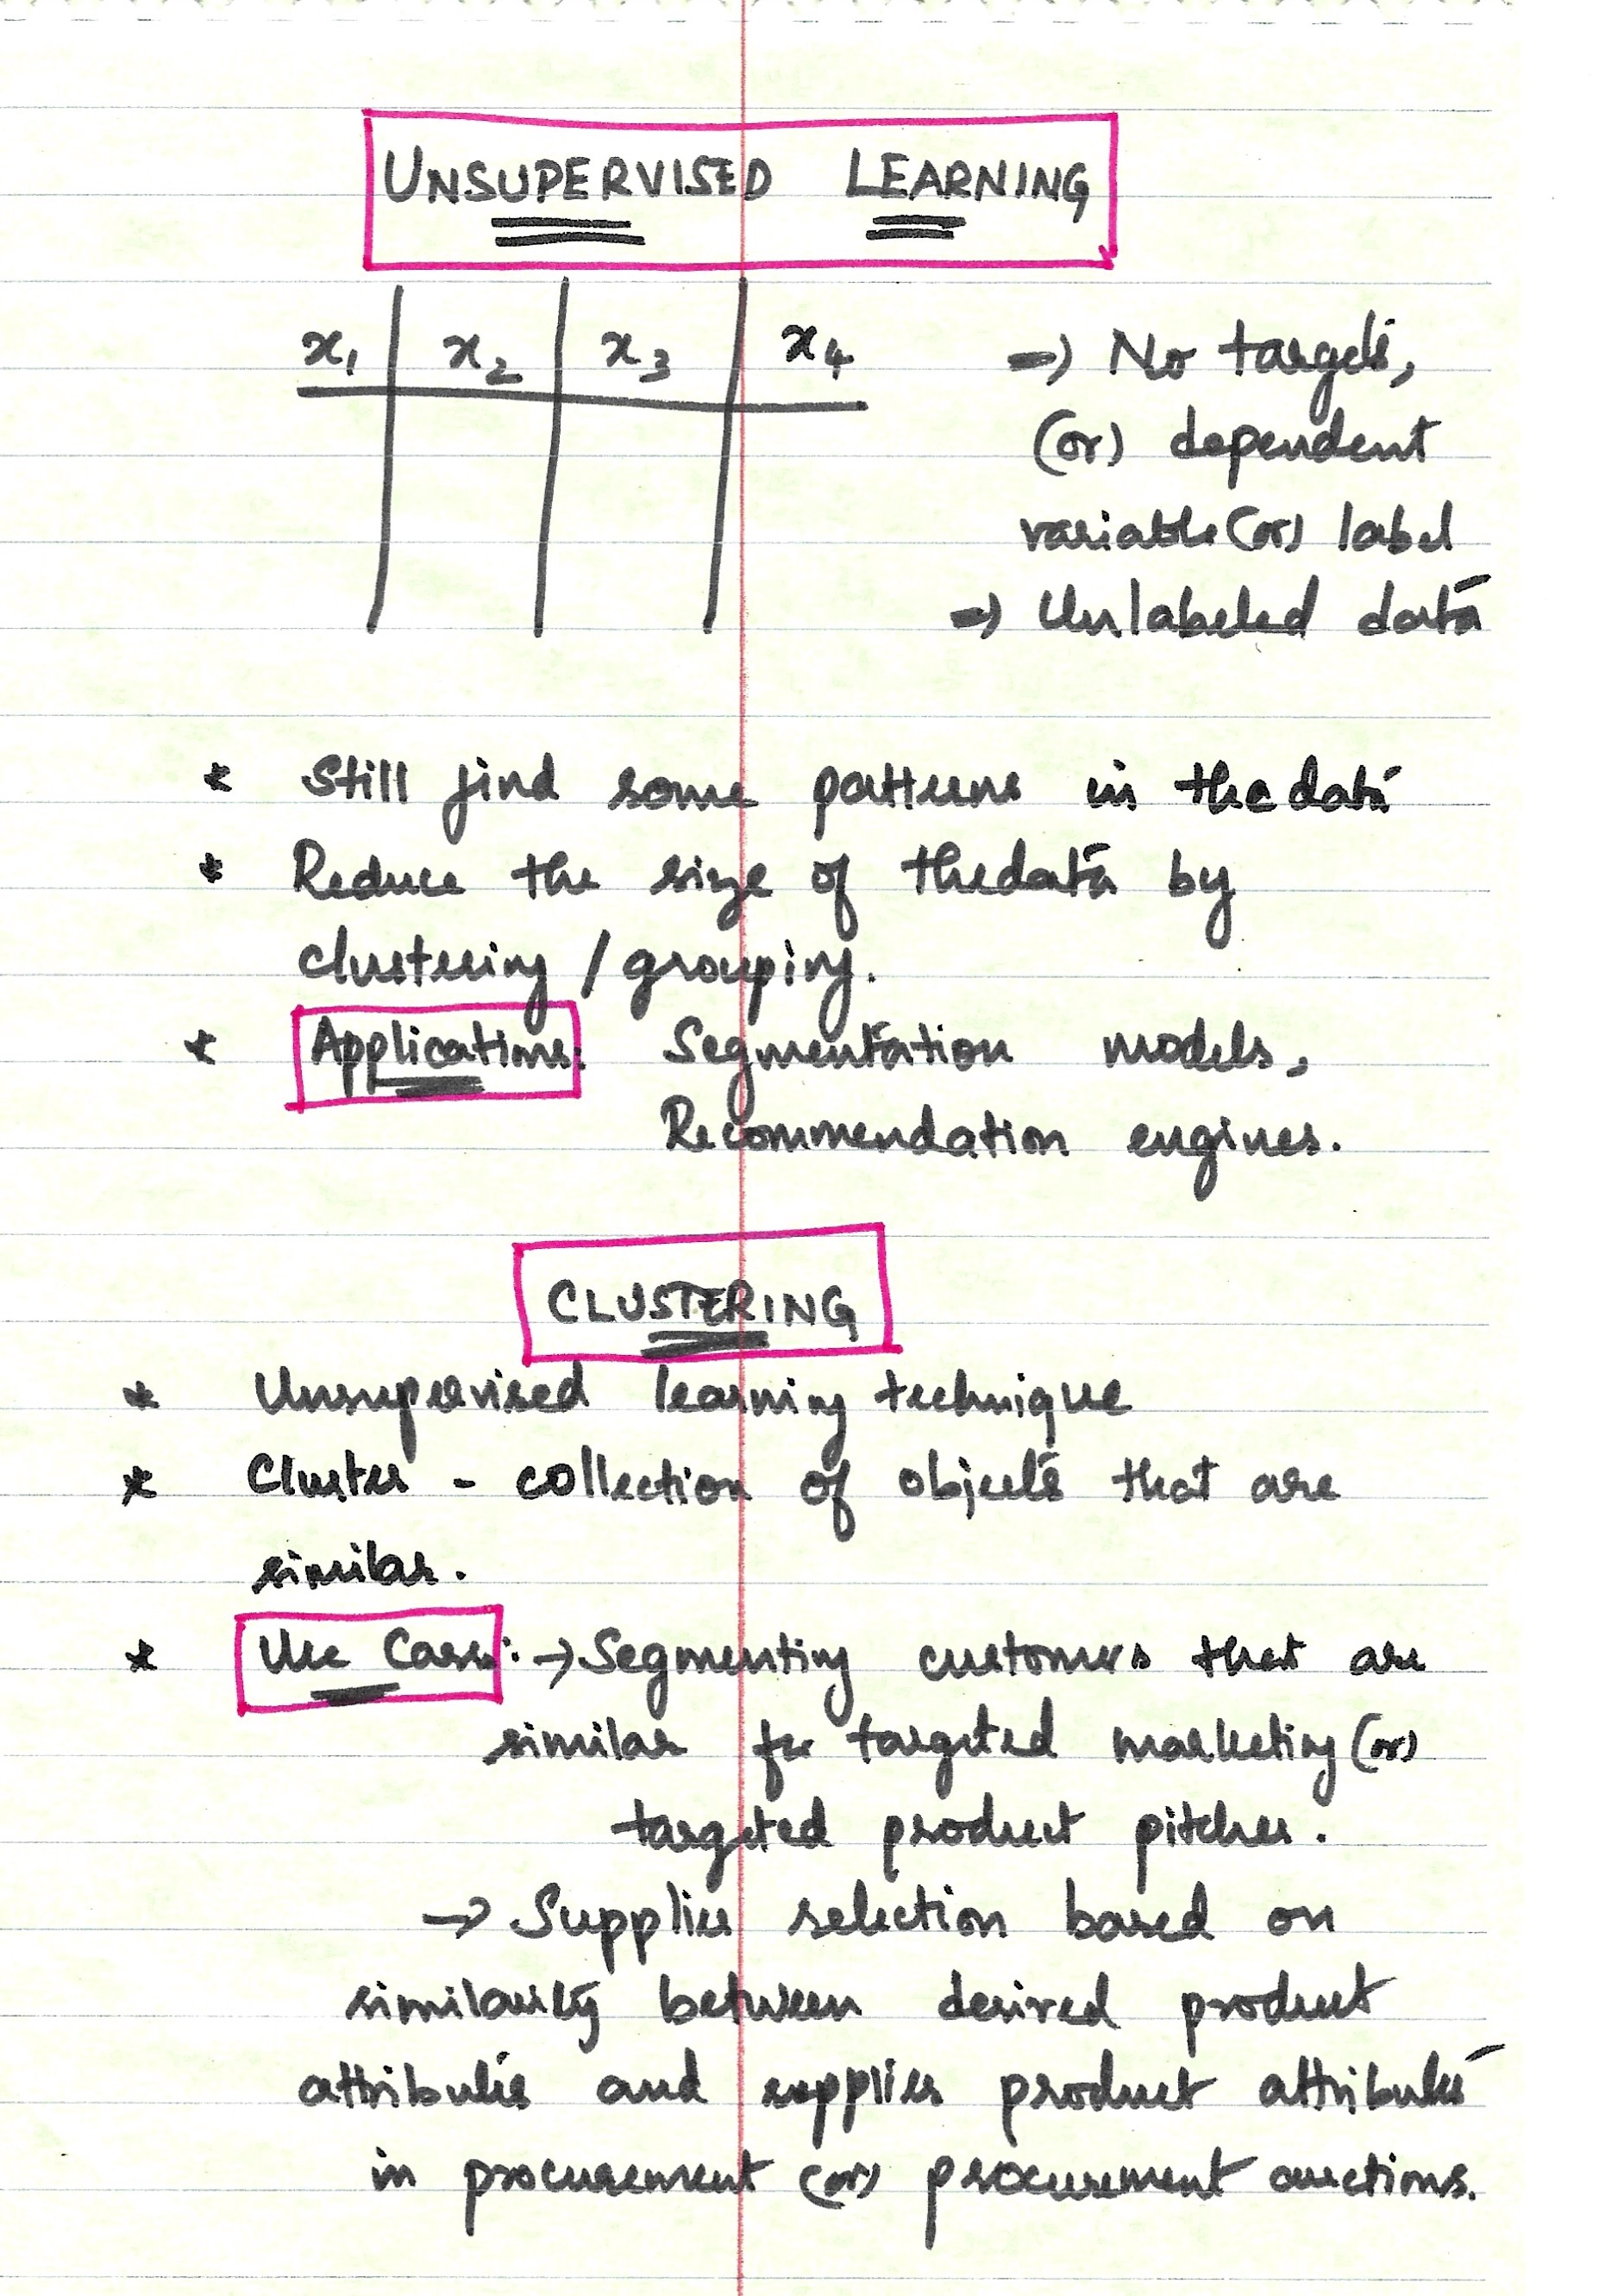 UNSUPERVISED LEARNING
x1 x2 x3 x4 => No targets,
(or) dependent
variable (or) label
=> Unlabeled data
* Still find some patterns in the data
* Reduce the size of the data by
clustering / grouping.
* Applications: Segmentation models,
Recommendation engines.
CLUSTERING
* Unsupervised learning technique
* Cluster - collection of objects that are
similar.
* Use Cases: → Segmenting customers that are
similar for targeted marketing (or)
targeted product pitches.
→ Supplier selection based on
similarity between desired product
attributes and supplier product attributes
in procurement (or) procurement auctions.